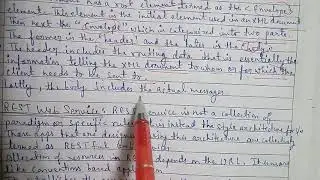 has a root element termed as the <Envelope>
element. This element is the initial element used in an XML document
Then next the "Envelope" which is categorized into two parts
The former is the 'header' and the later is the <body>
The header includes the routing data that is essentially the
information telling the XML document to whom or for which the
client needs to be sent to.
Lastly, the body includes the actual messages
REST Web Services: REST service is not a collection of
paradigm or specific rules instead the style architecture for
Those apps that are designed using this architecture are collectively
termed as RESTful
allocation of services in REST depends on the URL.
like conventions based application